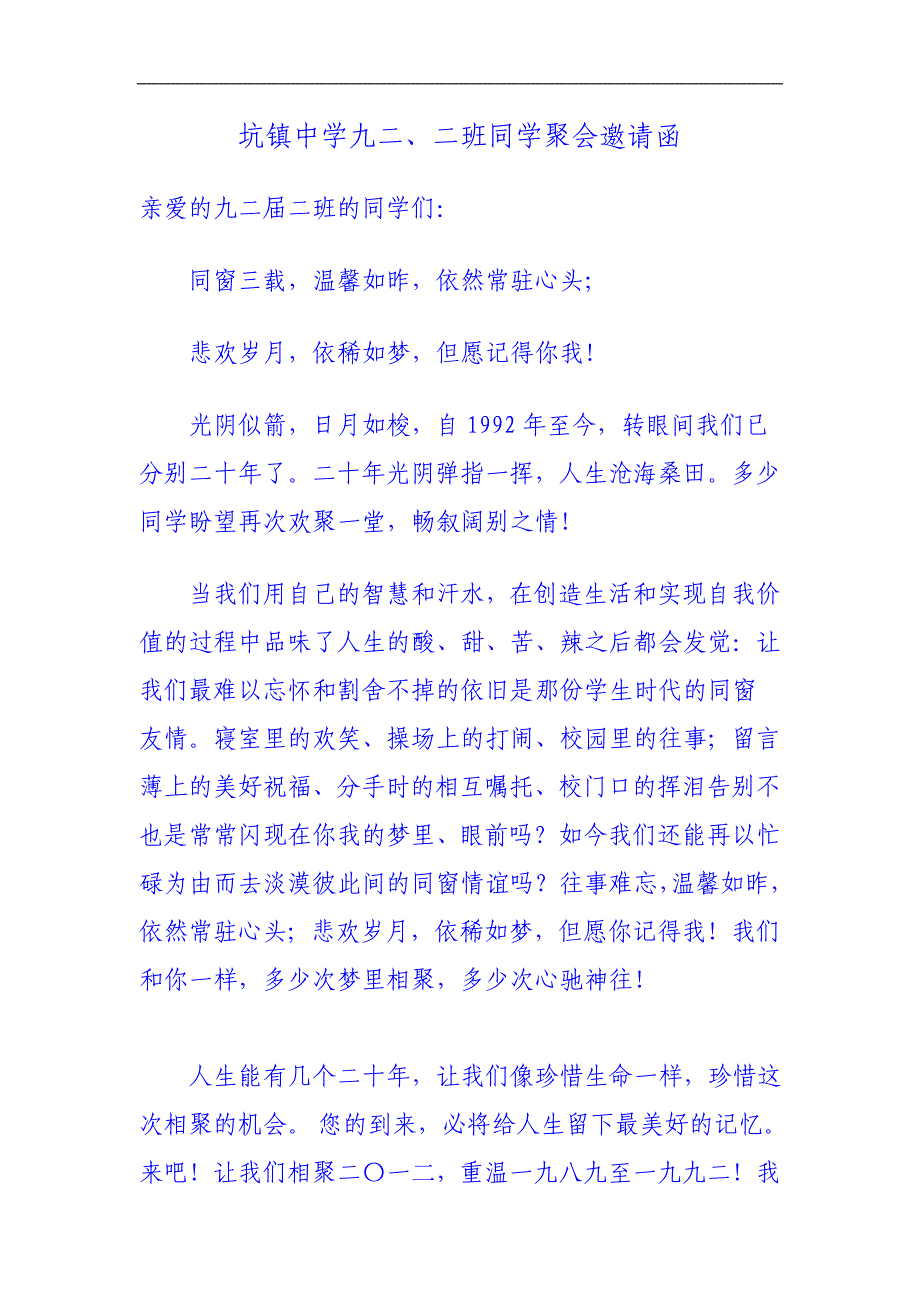 坑镇中学九二、二班同学聚会邀请函
亲爱的九二届二班的同学们：
同窗三载，温馨如昨，依然常驻心头；
悲欢岁月，依稀如梦，但愿记得你我！
光阴似箭，日月如梭，自 1992 年至今，转眼间我们已
分别二十年了。二十年光阴弹指一挥，人生沧海桑田。多少
同学盼望再次欢聚一堂，畅叙阔别之情！
当我们用自己的智慧和汗水，在创造生活和实现自我价
值的过程中品味了人生的酸、甜、苦、辣之后都会发觉：让
我们最难以忘怀和割舍不掉的依旧是那份学生时代的同窗
友情。寝室里的欢笑、操场上的打闹、校园里的往事；留言
薄上的美好祝福、分手时的相互嘱托、校门口的挥泪告别不
也是常常闪现在你我的梦里、眼前吗？如今我们还能再以忙
碌为由而去淡漠彼此间的同窗情谊吗？往事难忘，温馨如昨，
依然常驻心头；悲欢岁月，依稀如梦，但愿你记得我！我们
和你一样，多少次梦里相聚，多少次心驰神往！
人生能有几个二十年，让我们像珍惜生命一样，珍惜这
次相聚的机会。 您的到来，必将给人生留下最美好的记忆。
来吧！让我们相聚二〇一二，重温一九八九至一九九二！我